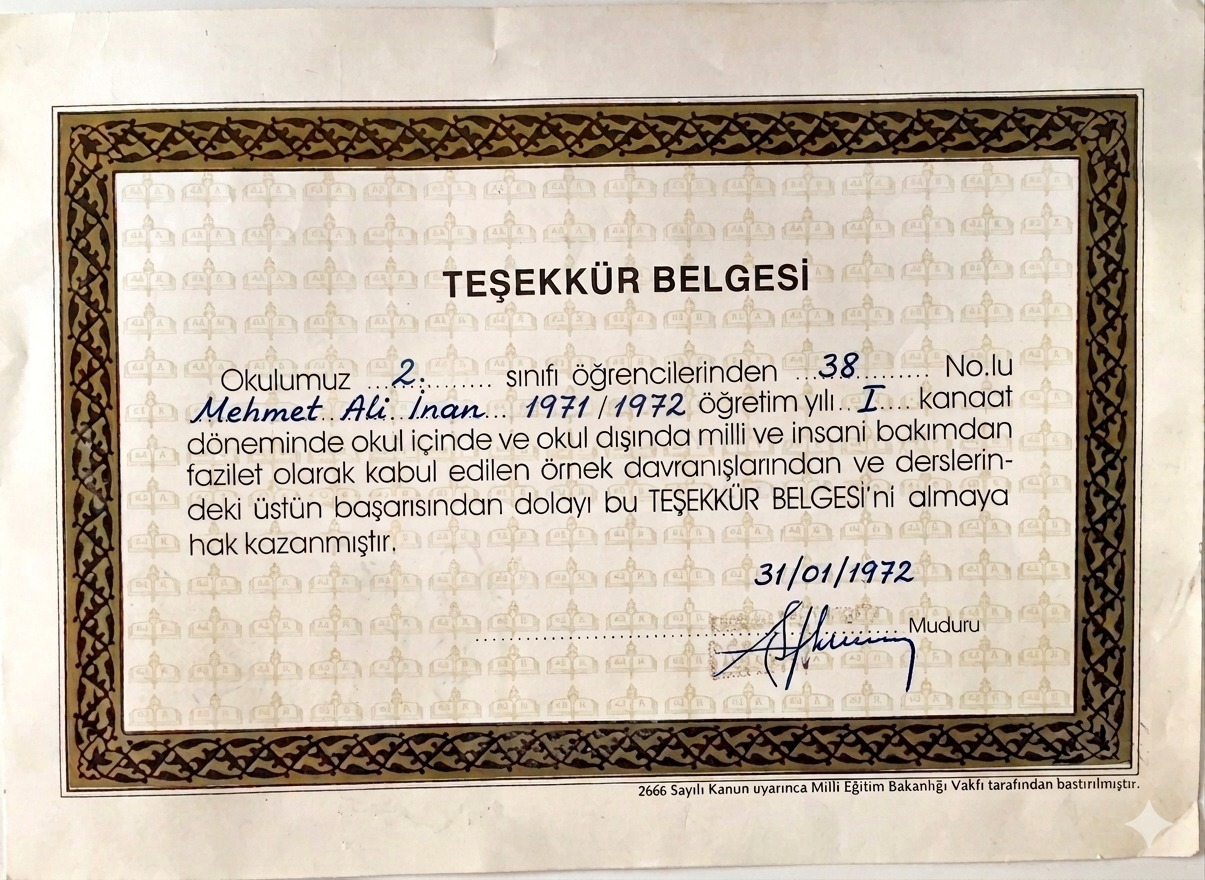 TEŞEKKÜR BELGESİ
Okulumuz ...2.......... sınıfı öğrencilerinden ...38.......... No.lu
Mehmet Ali İnan... 1971/1972 öğretim yılı..I.... kanaat
döneminde okul içinde ve okul dışında milli ve insani bakımdan
fazilet olarak kabul edilen örnek davranışlarından ve derslerin-
deki üstün başarısından dolayı bu TEŞEKKÜR BELGESİ'ni almaya
hak kazanmıştır.
31/01/1972
Muduru
2666 Sayılı Kanun uyarınca Milli Eğitim Bakanlığı Vakfı tarafından bastırılmıştır.